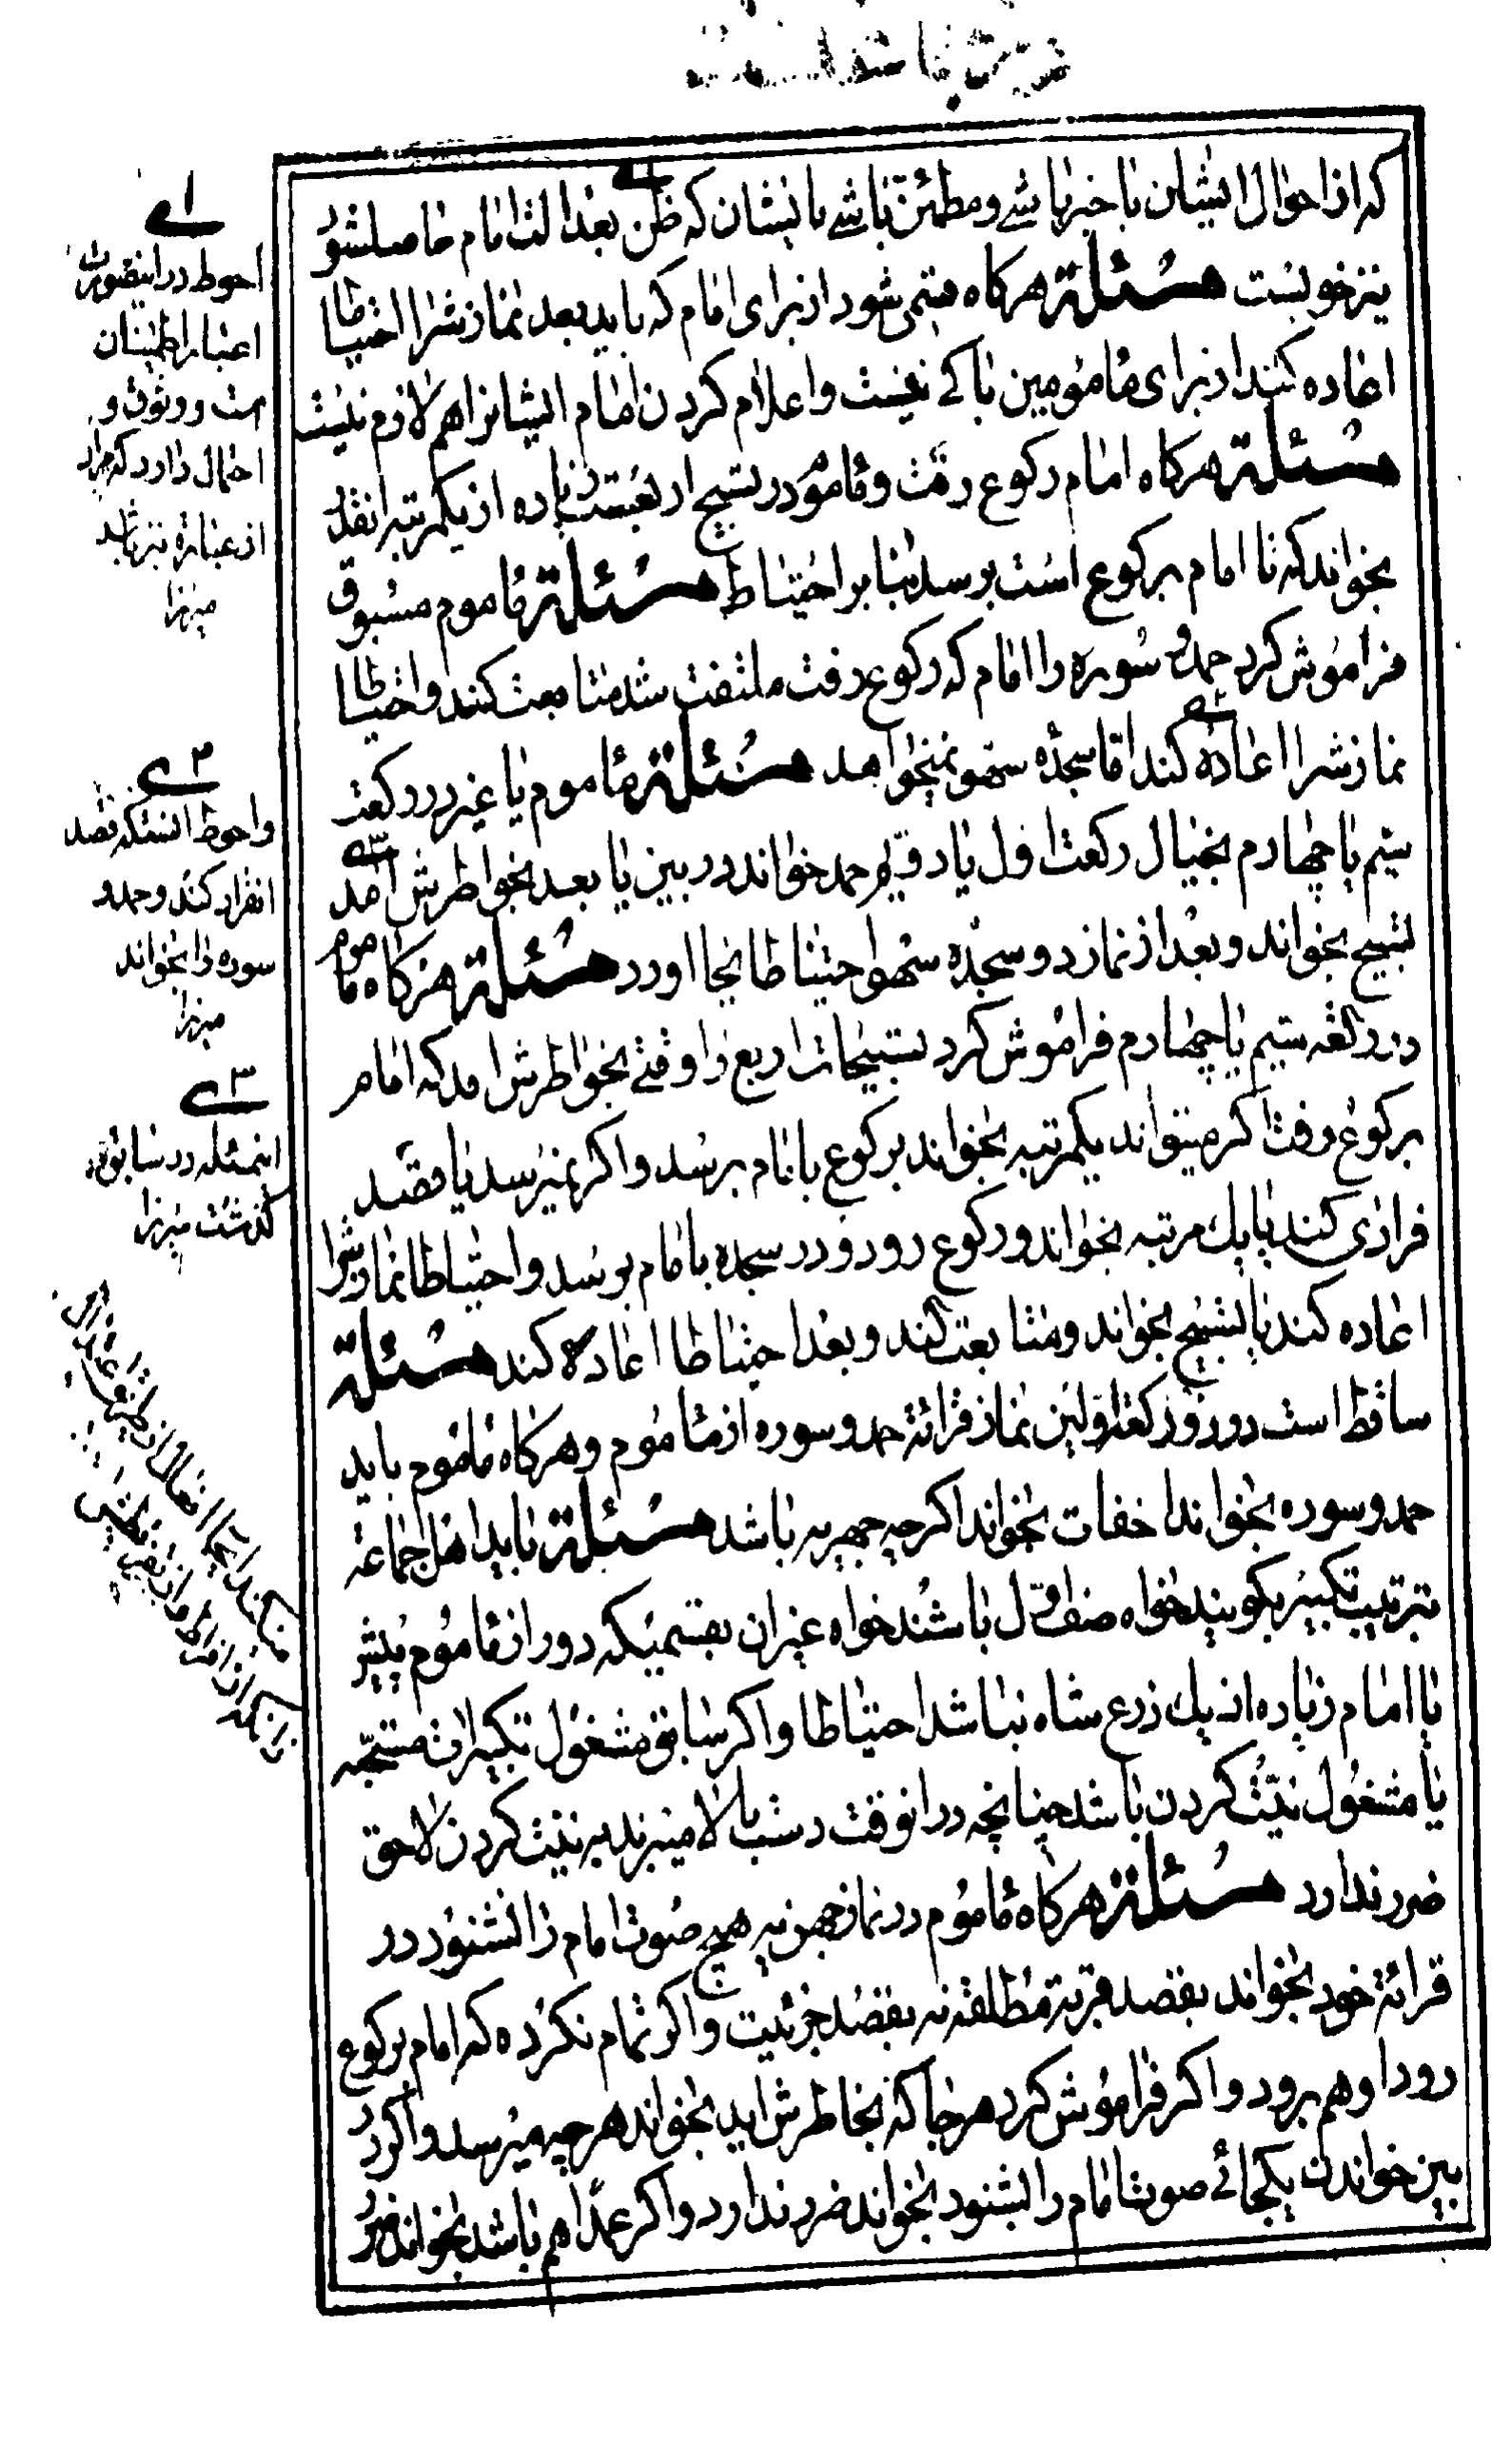 که از احوال ایشان با خبر باشی و مطمئن باشی بایشان که ظن بعدالت امام حاصلشود
نیز خوبست مسئلة هرکاه میتمی شود از برای امام که باید بعد نمازش را احتیاطا
اعاده کند از برای مامومین باکی نیست و اعلام کردن امام ایشانرا هم لازم نیست
مسئلة هرکاه امام رکوع رفت و ماموم در تسبیح اربعست زیاده از یکمرتبه انقدر
بخواند که تا امام برکوع است برسد بنابر احتیاط مسئلة ماموم مسبوق
فراموش کرد حمد و سوره را امام که رکوع رفت ملتفت شد متابعت کند و احتیاطا
نمازش را اعاده کند اما سجده سهو نمیخواهد مسئلة ماموم یا غیر در رکعت
سیم یا چهارم بخیال رکعت اول یا دویم حمد خواند و در بین یا بعد بخواطرش آمد
تسبیح بخواند و بعد از نماز دو سجده سهو احتیاطا بجا اورد مسئلة هرکاه ماموم
در رکعة سیم یا چهارم فراموش کرد تسبیحات اربع را وقتی بخواطرش امد که امام
برکوع رفت اکر میتواند یکمرتبه بخواند برکوع با امام برسد و اکر نمیرسد یا قصد
فرادی کند یا یك مرتبه بخواند و رکوع رود و در سجده با امام برسد و احتیاطا نمازش را
اعاده کند یا تسبیح بخواند و متابعت کند و بعد احتیاطا اعاده کند مسئلة
ساقط است در دو رکعت اولین نماز قرائة حمد و سوره از ماموم و هرکاه ماموم باید
حمد و سوره بخواند اخفات بخواند اکر چه جهریه باشد مسئلة باید اهل جماعة
بترتیب تکبیر بکویند خواه صف اول باشند خواه غیر ان بقسمیکه دور از ماموم پیش
یا امام زیاده از یك زرع شاه نباشد احتیاطا و اکر سابق مشغول تکبیرات مستحبه
یا مشغول نیت کردن باشد چنانچه در انوقت دست بالا میبرند به نیت کردن لاحق
ضرر ندارد مسئلة هرکاه ماموم در نماز جهریه هیچ صوت امام را نشنود در
قرائة خود بخواند بقصد قربة مطلقه نه بقصد جزئیت و اکر تمام نکرده که امام برکوع
رود او هم برود و اکر فراموش کرد هر جا که بخاطرش اید بخواند هر چه میرسد و اکر در
بین خواندن یکجائی صوت امام را بشنود بخواند ضرر ندارد و اکر عمدا هم باشد بخواند ضرر
احوط در اینصورت
اعتبار اطمینان
است و وثوق و
احتمال دارد که مراد
از عبارة نیز باشد
میرزا
و احوط انستکه قصد
انفراد کند و حمد و
سوره را بخواند
میرزا
اینمسئله در سابق
کذشت میرزا